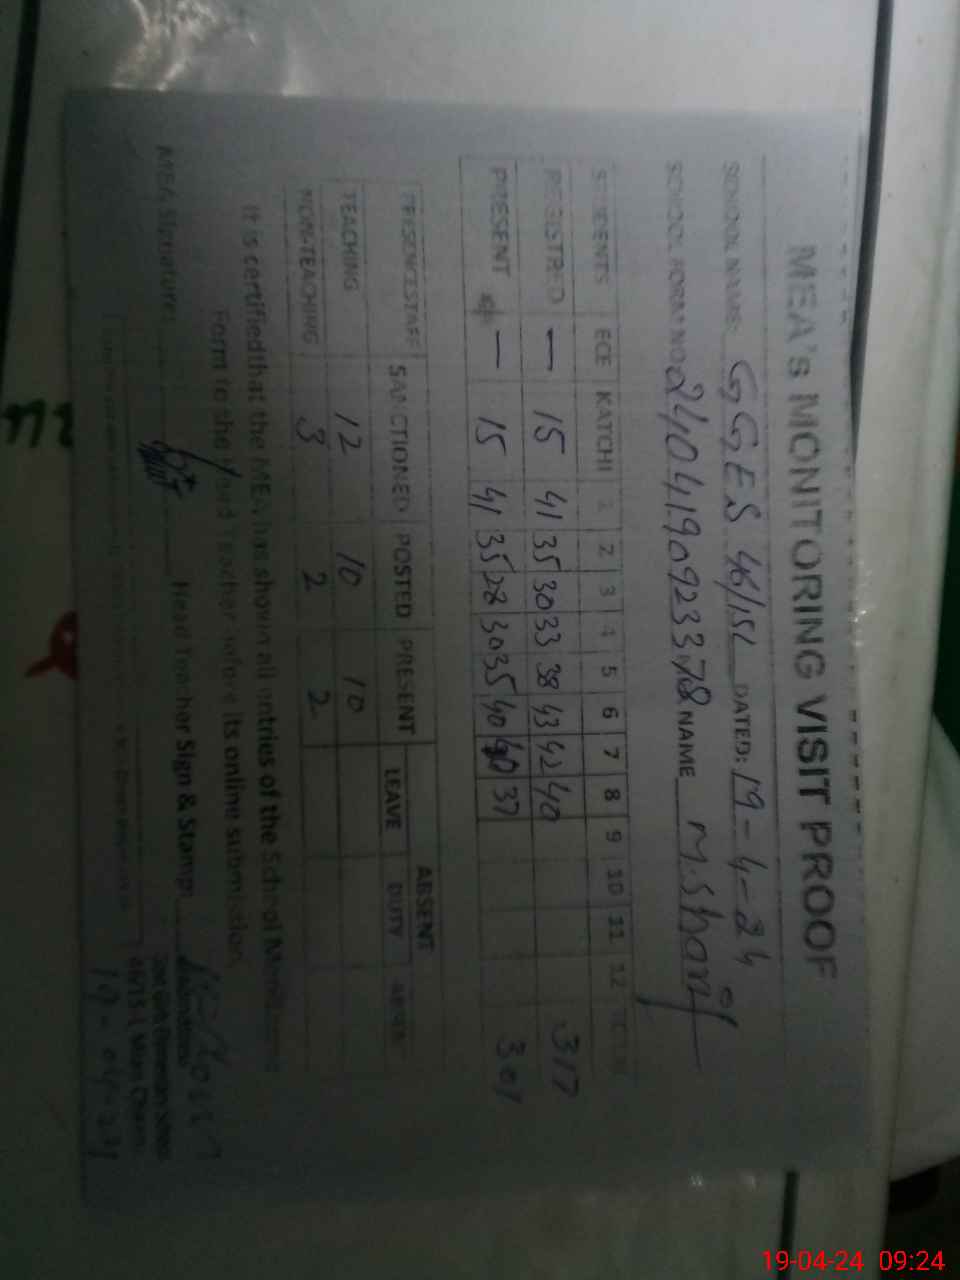 MEA's MONITORING VISIT PROOF
SCHOOL NAME: GGES 46/15L DATED: 19-4-24
SCHOOL FORM NO. 2404190923378 NAME M. Sharif
STUDENTS ECE KATCHI 1 2 3 4 5 6 7 8 9 10 11 12
REGISTRED — 15 41 35 30 33 38 43 42 40 317
PRESENT — 15 41 35 28 30 35 40 40 37 301
ABSENT
SANCTIONED POSTED PRESENT LEAVE DUTY
TEACHING 12 10 10
NON-TEACHING 3 2 2
It is certified that the MEA has shown all entries of the School Monitoring
Form to the Head Teacher before its online submission.
MEA Signature: Head Teacher Sign & Stamp:
46/15-L Mian Channu
19-04-24
19-04-24 09:24